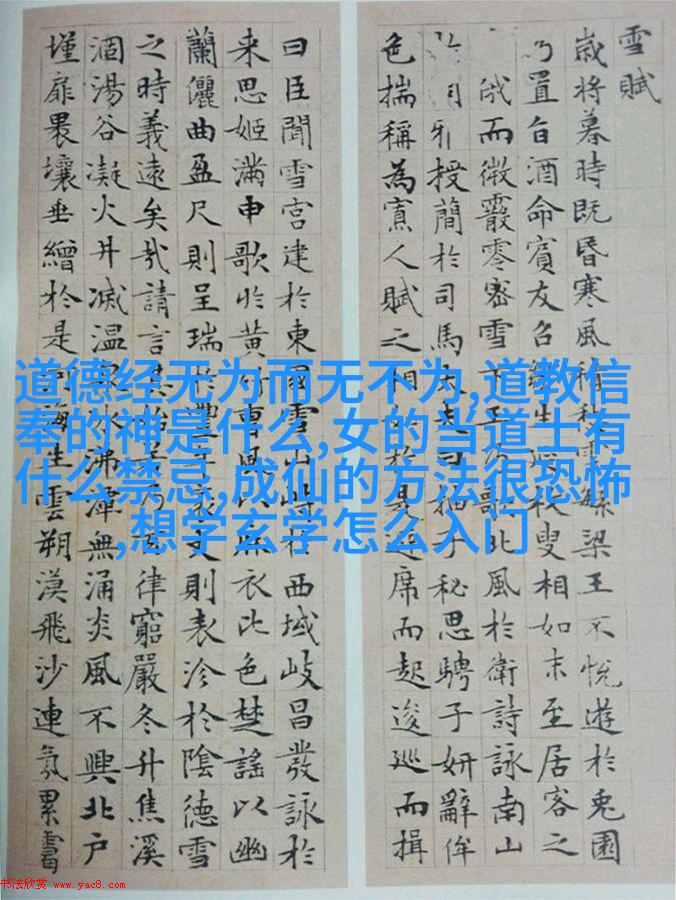 雪賦
歲将暮時既昏寒風積 梁王不悅遊於兔園
乃置旨酒命賓友召 生延枚叟相如末至居客之
俄而微霰零密雪下王乃歌北風於衛詩詠南山
雅授簡於司馬 曰抽子秘思騁子妍辭侔
色揣稱為寡人賦之相如於是避席而起逡巡而揖
曰臣聞雪宮建於東國雪山峙於西域岐昌發詠於
来思姬滿申歌於黄竹曹風以麻衣比色楚謠以幽
蘭儷曲盈尺則呈瑞於豐年袤丈則表沴於陰德雪
之時義遠矣哉請言其始若乃 律窮嚴冬升焦溪
涸湯谷凝火井滅温泉冰沸潭無涌炎風不興北户
墐扉裸壤垂繒於是河海生雲朔漠飛沙連氛累靄
道德经无为而无不为,道教信
奉的神是什么,女的当道士有
什么禁忌,成仙的方法很恐怖
,想学玄学怎么入门
书法欣赏 www.yac8.com